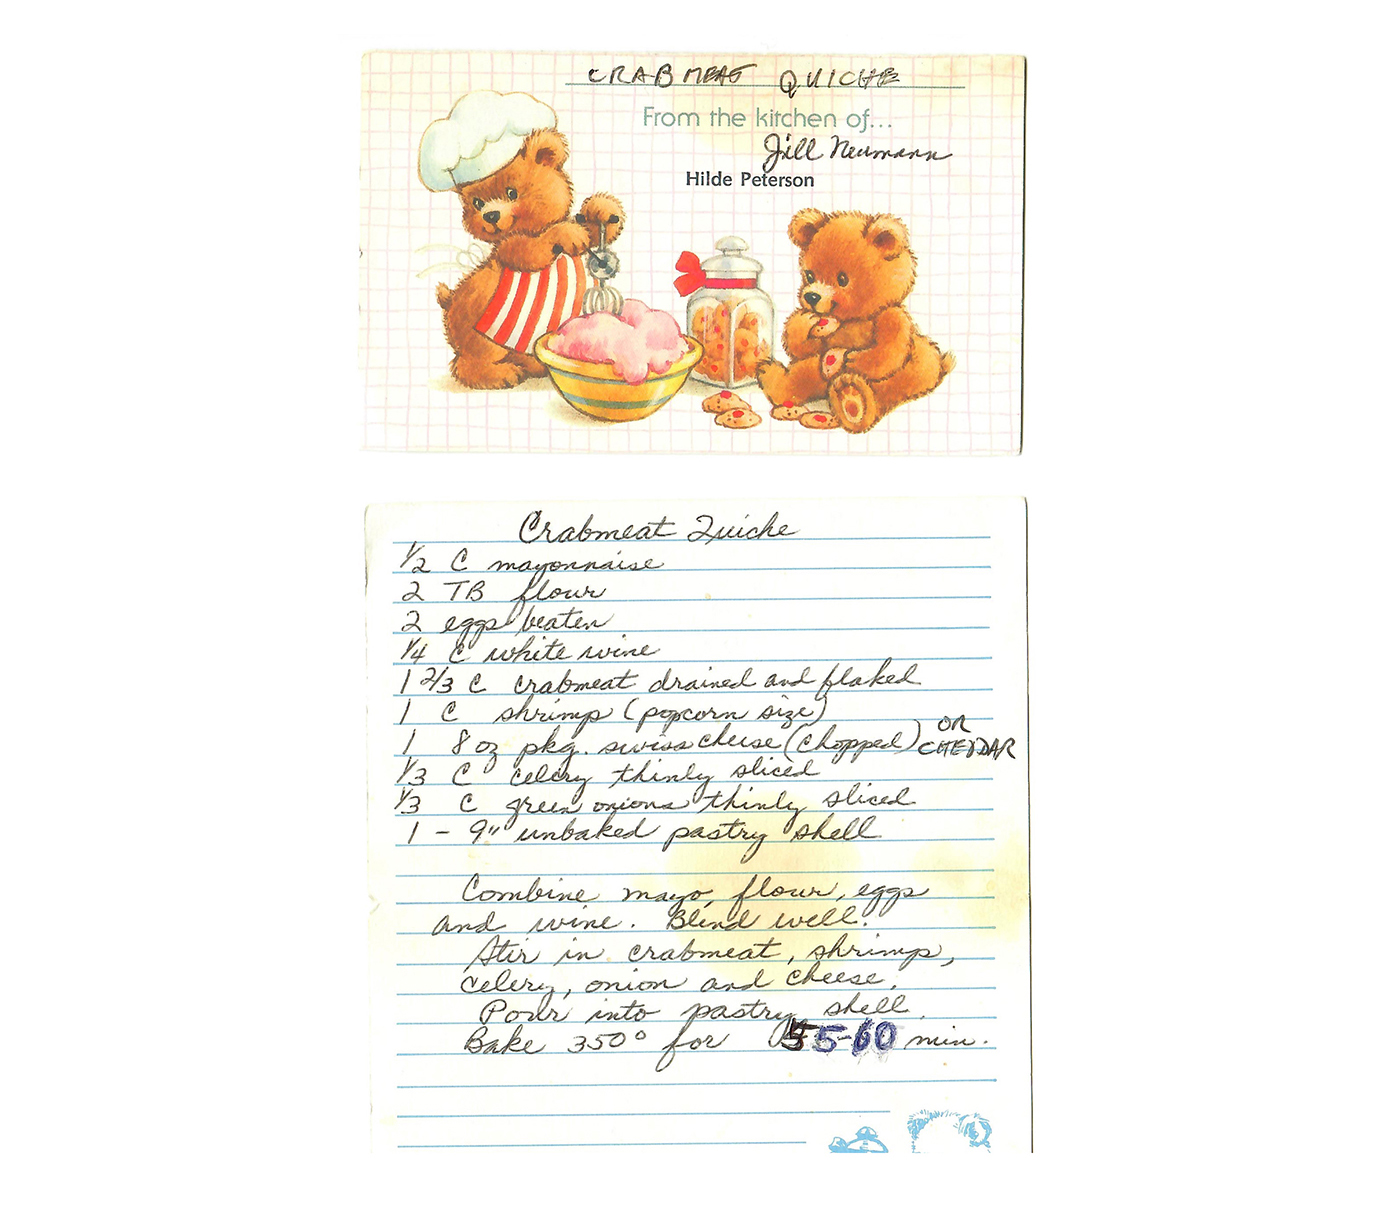 CRABMEAT QUICHE
From the kitchen of...
Jill Neumann
Hilde Peterson
Crabmeat Quiche
1/2 C mayonnaise
2 TB flour
2 eggs beaten
1/4 C white wine
1 2/3 C crabmeat drained and flaked
1 C shrimp (popcorn size)
1 8 oz pkg. swiss cheese (chopped) OR CHEDDAR
1/3 C celery thinly sliced
1/3 C green onions thinly sliced
1 - 9" unbaked pastry shell
Combine mayo, flour, eggs
and wine. Blend well.
Stir in crabmeat, shrimp,
celery, onion and cheese.
Pour into pastry shell.
Bake 350° for 55-60 min.